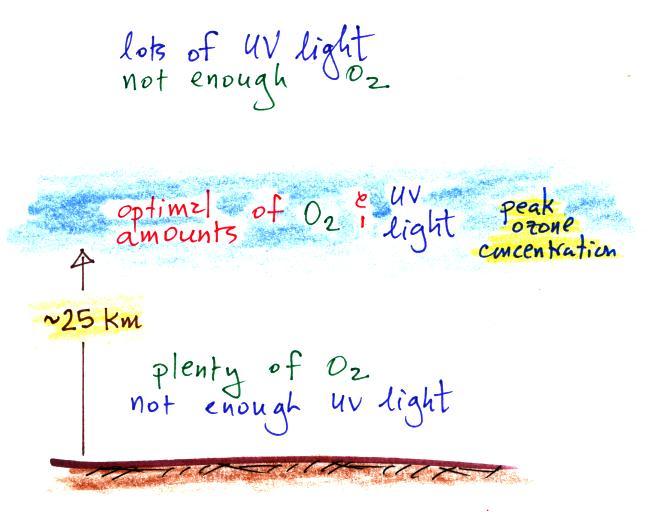 lots of UV light
not enough O2
optimal of O2 & UV
amounts light
peak
ozone
concentration
~25 km
plenty of O2
not enough UV light